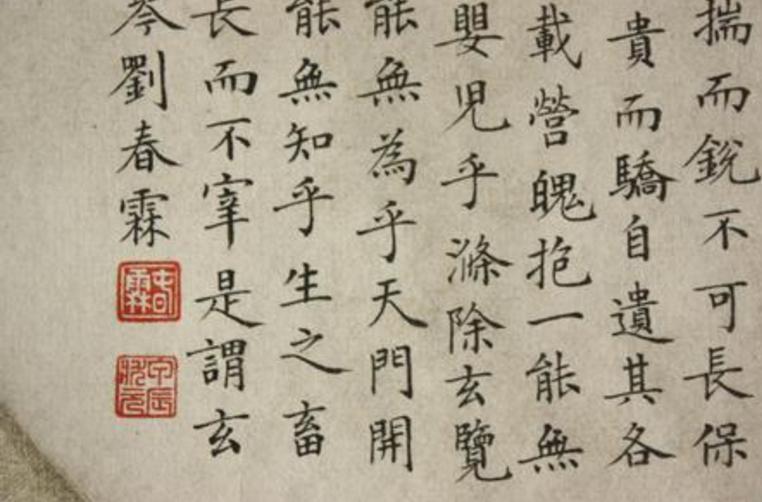 揣而銳不可長保
貴而驕自遺其各
載營魄抱一能無
嬰児乎滌除玄覽
能無為乎天門開
能無知乎生之畜
長而不宰是謂玄
岑劉春霖
春霖